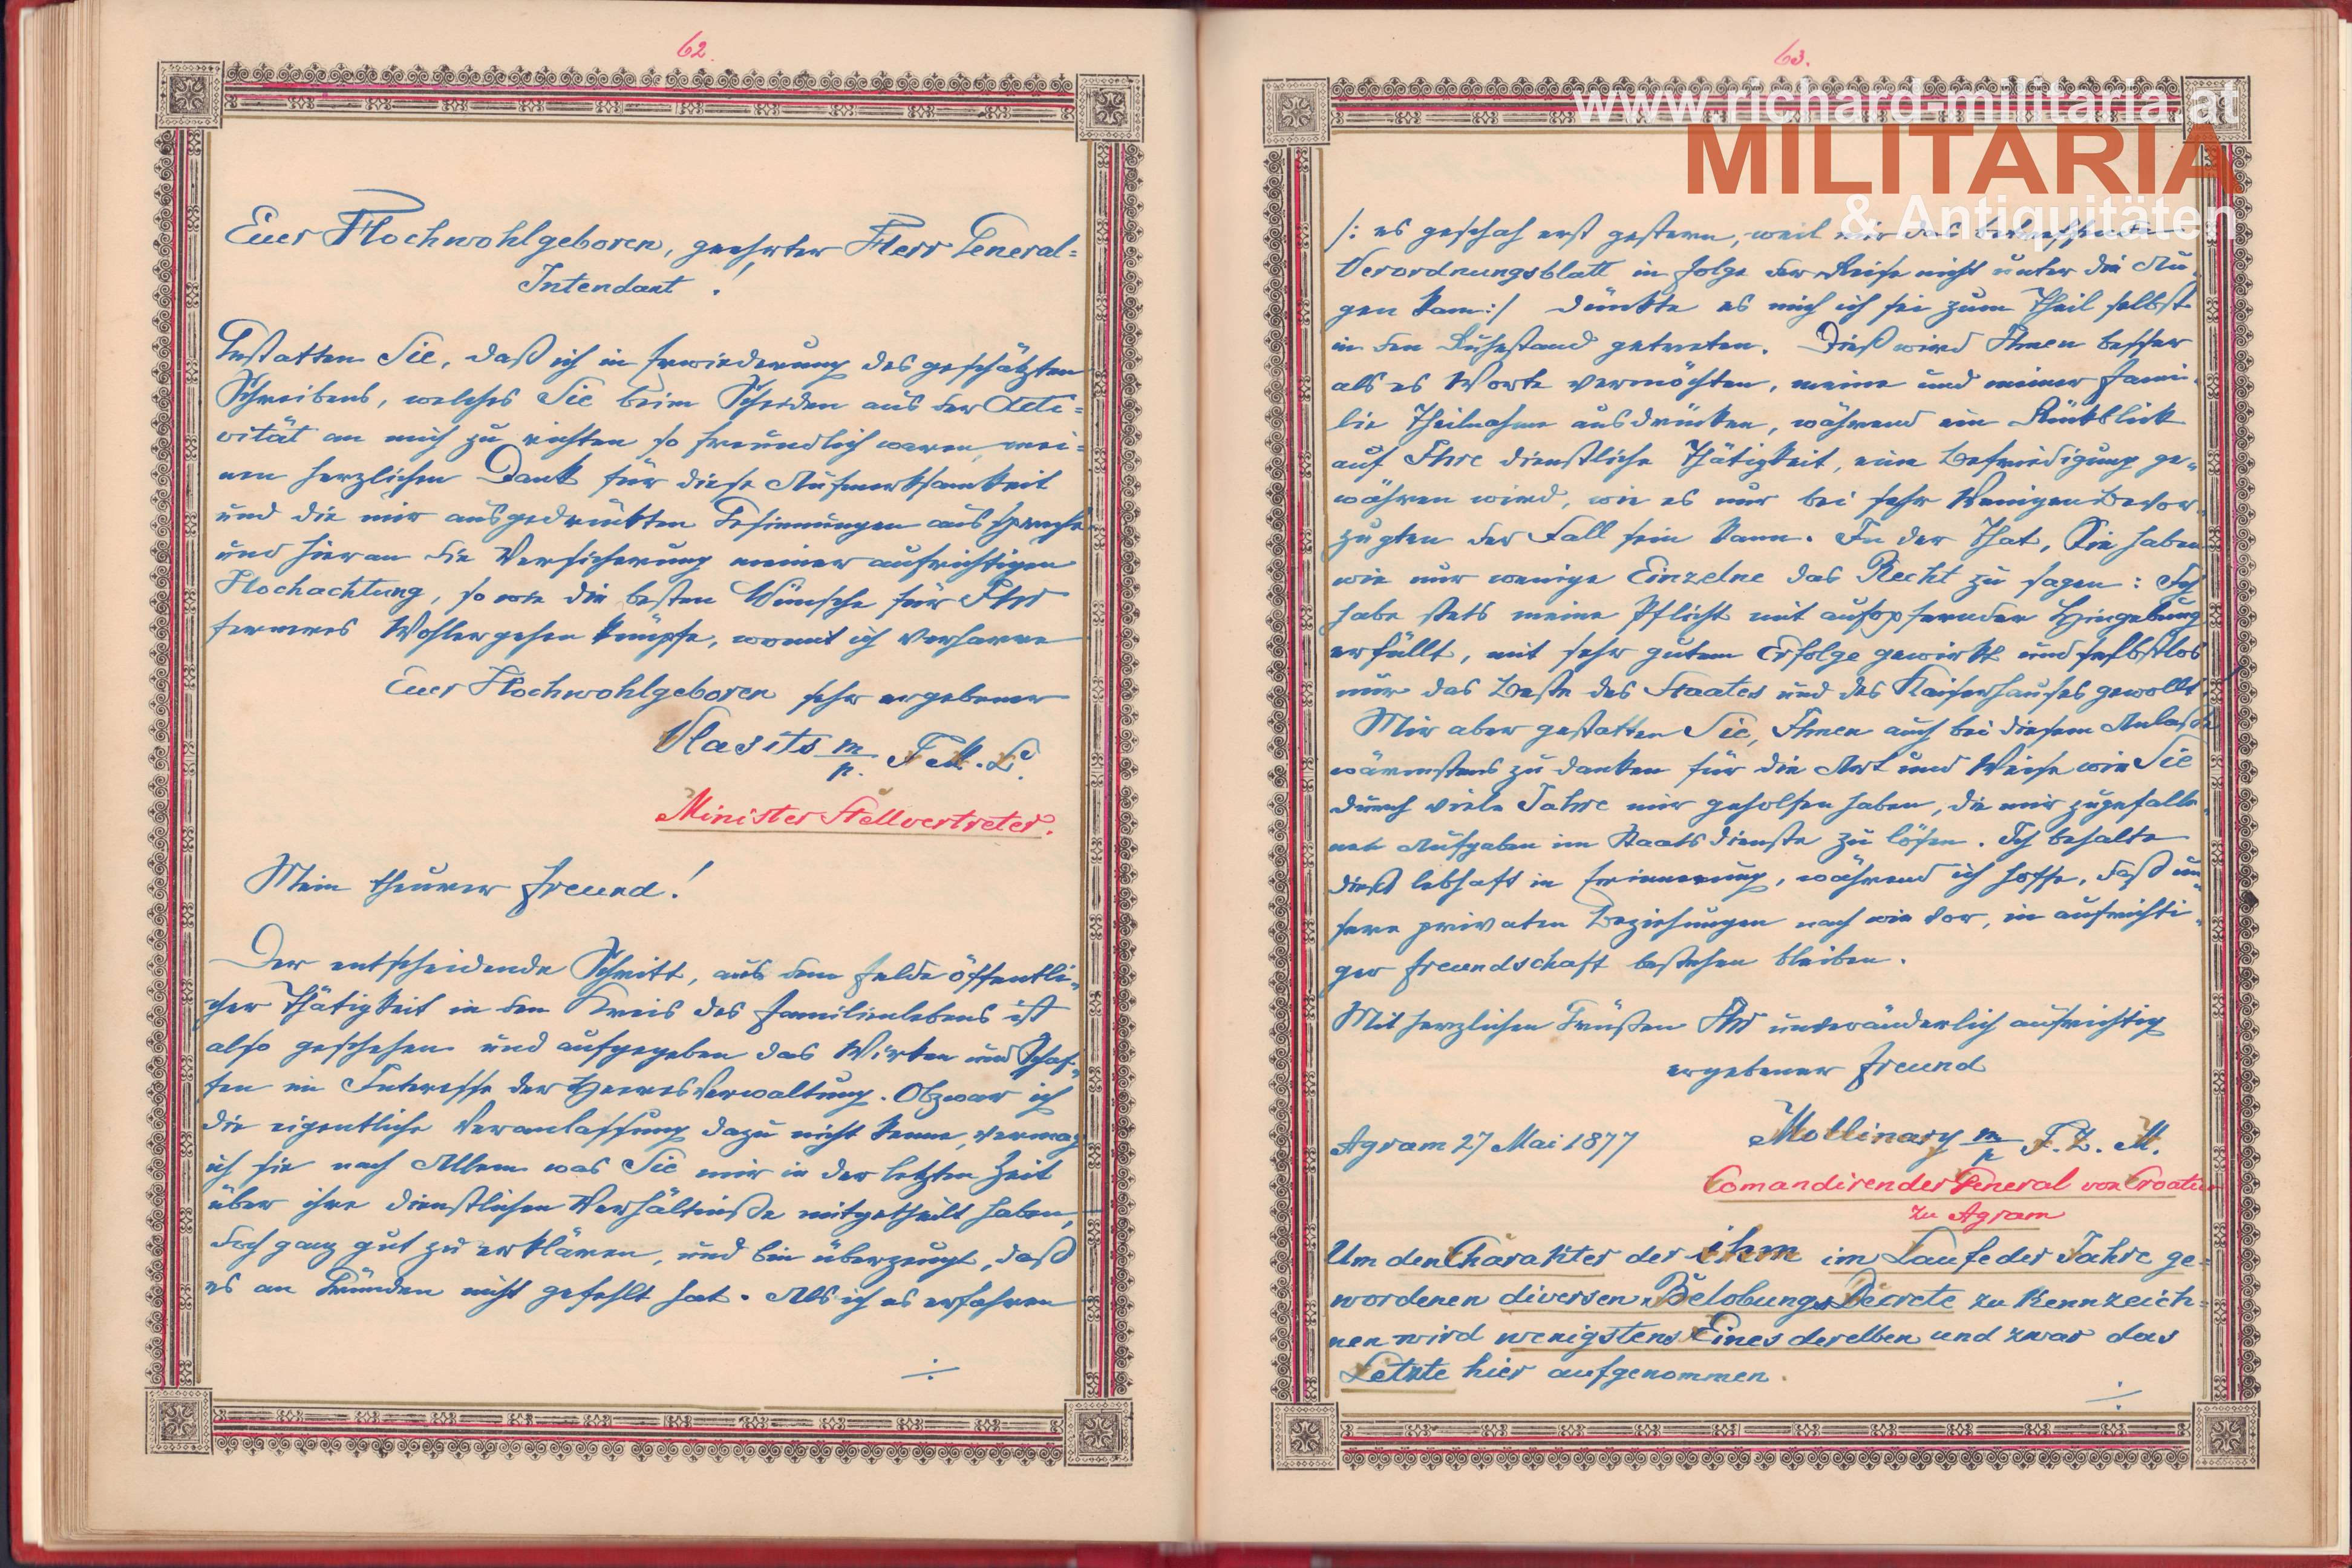 62.
Euer Hochwohlgeboren, geehrter Herr General=
Intendant !
Gestatten Sie, daß ich in Erwiederung des geschätzten
Schreibens, welches Sie beim Scheiden aus der Acti=
vität an mich zu richten so freundlich waren, mei=
nen herzlichen Dank für diese Aufmerksamkeit
und die mir ausgedrückten Gesinnungen ausspreche
und hieran die Versicherung meiner aufrichtigen
Hochachtung, so wie die besten Wünsche für Ihr
ferneres Wohlergehen knüpfe, womit ich verharre
Euer Hochwohlgeboren sehr ergebener
Vlasits m/p. F.M.L.
Minister Stellvertreter.
Mein theurer Freund!
Der entscheidende Schritt, aus dem Felde öffentli=
cher Thätigkeit in den Kreis des Familienlebens ist
also geschehen und aufgegeben das Wirken und Schaf=
fen im Interesse der Heeresverwaltung. Obzwar ich
die eigentliche Veranlassung dazu nicht kenne, vermag
ich sie nach Allem was Sie mir in der letzten Zeit
über ihre dienstlichen Verhältniße mitgetheilt haben,
doch ganz gut zu erklären, und bin überzeugt, daß
es an Gründen nicht gefehlt hat. Als ich es erfahren
./.
63.
www.richard-militaria.at
MILITARIA
& Antiquitäten
/: es geschah erst gestern, weil mir das betreffende
Verordnungsblatt in Folge der Reise nicht unter die Au=
gen kam :/ dünkte es mich ich sei zum Theil selbst
in den Ruhestand getreten. Dieß wird Ihnen besser
als es Worte vermöchten, meine und meiner Fami=
lie Theilnahme ausdrücken, während ein Rückblick
auf Ihre dienstliche Thätigkeit, eine Befriedigung ge=
währen wird, wie es nur bei sehr Wenigen Bevor=
zugten der Fall sein kann. In der That, Sie haben
wie nur wenige Einzelne das Recht zu sagen: Ich
habe stets meine Pflicht mit aufopfernder Hingebung
erfüllt, mit sehr gutem Erfolge gewirkt und selbstlos
nur das Beste des Staates und des Kaiserhauses gewollt.
Mir aber gestatten Sie, Ihnen auch bei diesem Anlaße
wärmstens zu danken für die Art und Weise wie Sie
durch viele Jahre mir geholfen haben, die mir zugefalle=
nen Aufgaben im Staatsdienste zu lösen. Ich behalte
dieß lebhaft in Erinnerung, während ich hoffe, daß un=
sere privaten Beziehungen nach wie vor, in aufrichti=
ger Freundschaft bestehen bleiben.
Mit herzlichen Grüßen Ihr unveränderlich aufrichtig
ergebener Freund
Agram 27 Mai 1877 Mollinary m/p F.Z.M.
Comandirender General von Croatien
zu Agram
Um den Charakter der ihm im Laufe der Jahre ge=
wordenen diversen Belobungs Decrete zu kennzeich=
nen wird wenigstens Eines derselben und zwar das
Letzte hier aufgenommen.
./.